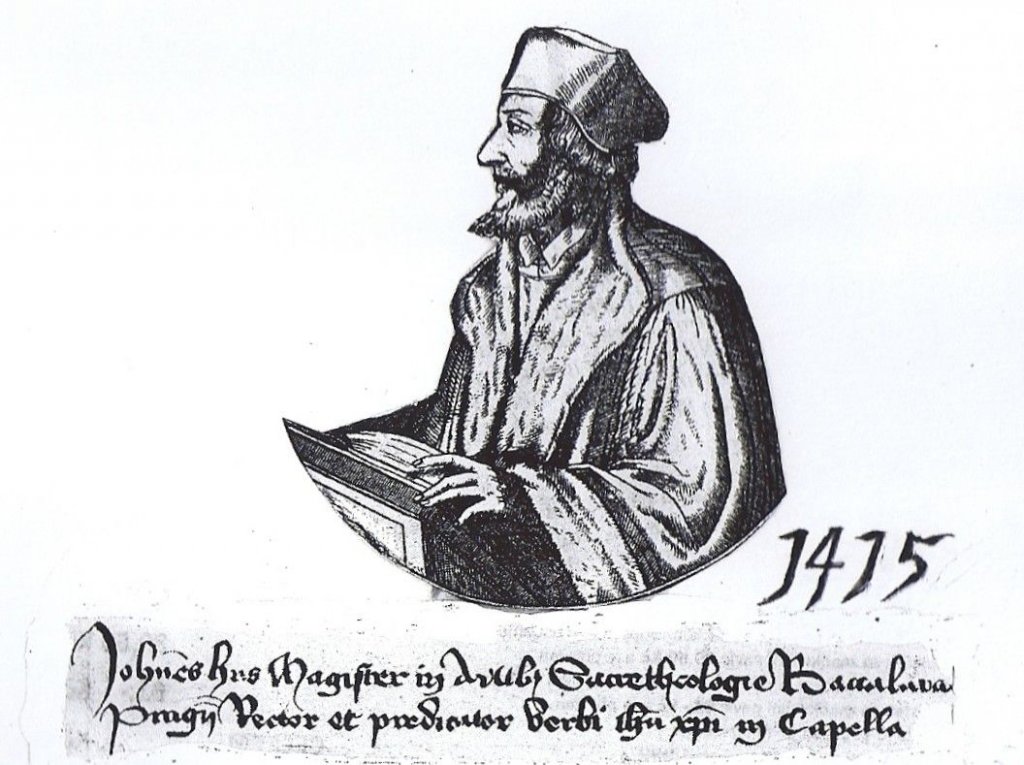 1415
Johēs hus Magister in Artib9 Sacretheologie Baccalaria
Prageñ Rector et predicator Verbi ihu xpi in Capella